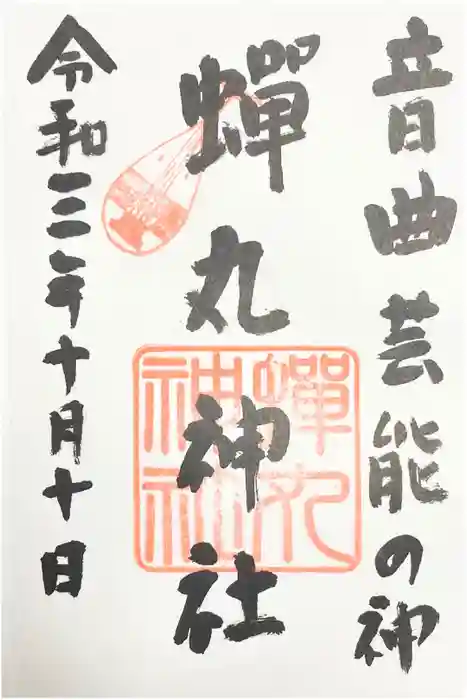 音曲芸能の神
蝉丸神社
蝉丸神社
令和三年十月十日